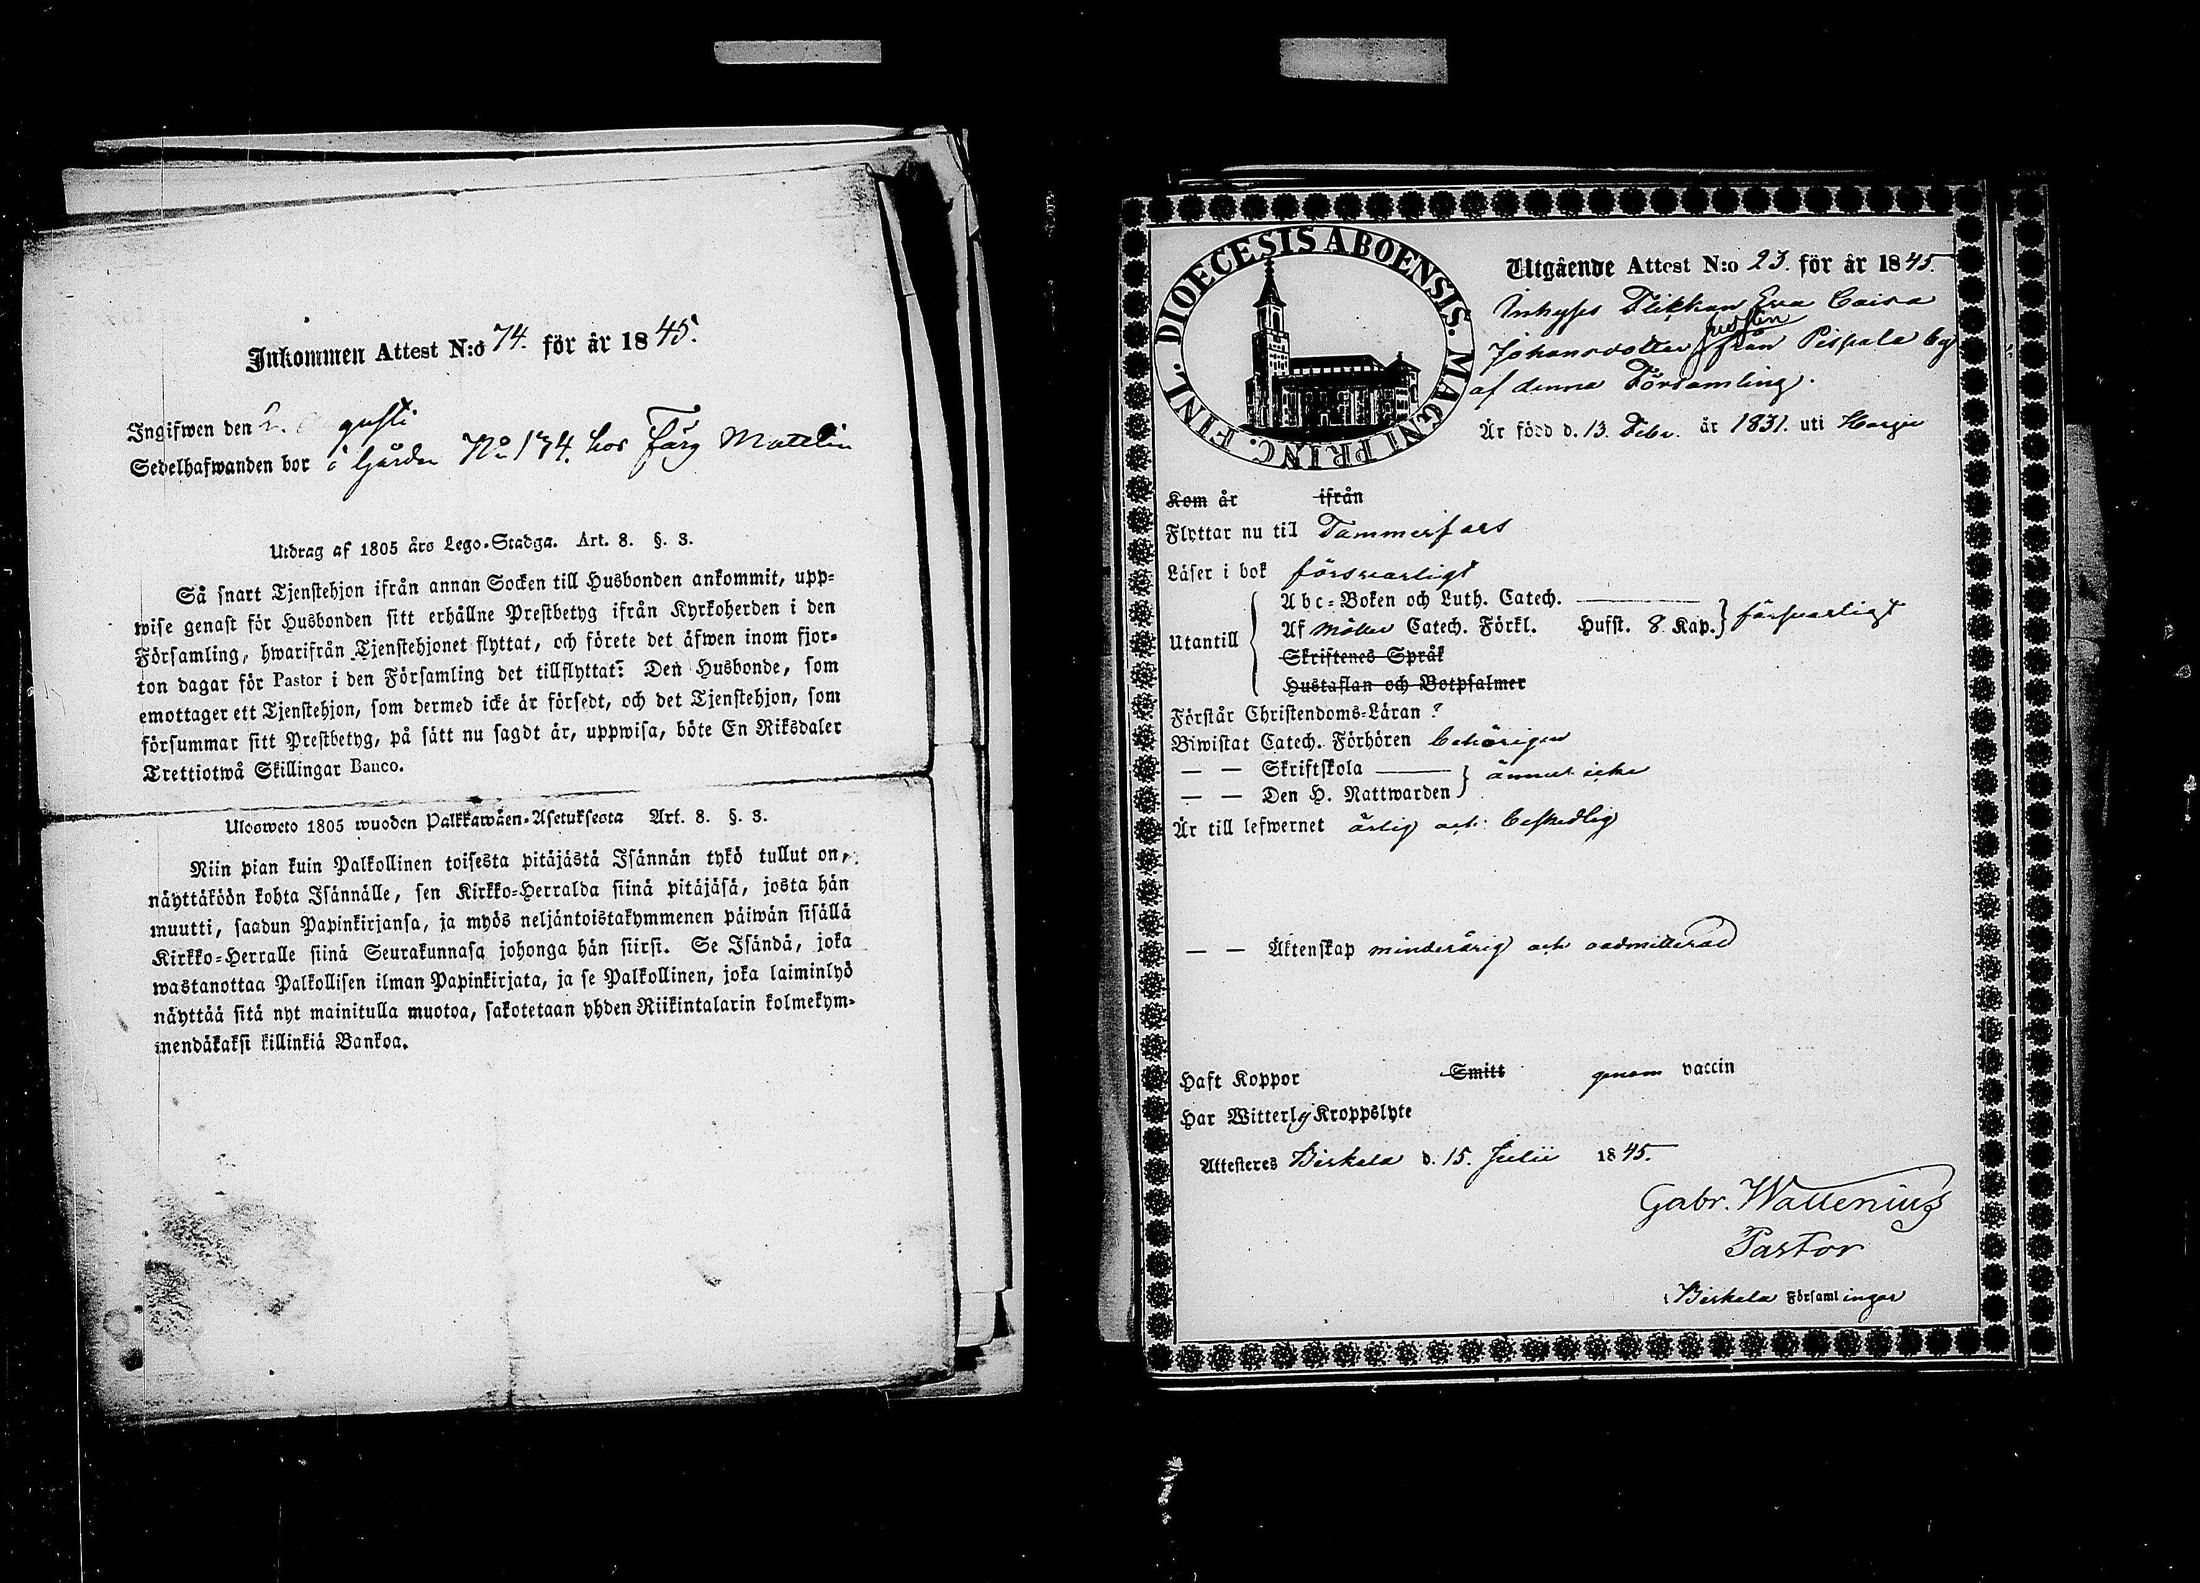 Inkommen Attest N:o 74. för år 1845.
Ingifwen den 2. gusti
Sedelhafwanden bor i Gården No 174. hos Färg Mattelin
Utdrag af 1805 års Lego-Stadga. Art. 8. §. 3.
Så snart Tjenstehjon ifrån annan Socken till Husbonden ankommit, upp-
wise genast för Husbonden sitt erhållne Prestbetyg ifrån Kyrkoherden i den
Församling, hwarifrån Tjenstehjonet flyttat, och förete det äfwen inom fjor-
ton dagar för Pastor i den Församling det tillflyttat: Den Husbonde, som
emottager ett Tjenstehjon, som dermed icke är försedt, och det Tjenstehjon, som
försummar sitt Prestbetyg, på sätt nu sagdt är, uppwisa, böte En Riksdaler
Trettiotwå Skillingar Banco.
Ulosweto 1805 wuoden Palkkawäen-Asetuksesta Art. 8. §. 3.
Niin pian kuin Palkollinen toisesta pitäjästä Isännän tykö tullut on,
näyttäköön kohta Isännälle, sen Kirkko-Herralda siinä pitäjäsä, josta hän
muutti, saadun Papinkirjansa, ja myös neljäntoistakymmenen päiwän sisällä
Kirkko-Herralle siinä Seurakunnasa johonga hän siirsi. Se Isändä, joka
wastanottaa Palkollisen ilman Papinkirjata, ja se Palkollinen, joka laiminlyö
näyttää sitä nyt mainitulla muotoa, sakotetaan yhden Riikintalarin kolmekym-
mendäkaksi killinkiä Bankoa.
DIOECESIS ABOENSIS. MAGNI PRINC. FINL.
Utgående Attest N:o 23. för år 1845.
Inhyses Flickan Eva Caisa
Johansdotter från Pispala by
af denna Församling.
Är född d. 13. Febr. år 1831. uti Harju
Kom år ifrån
Flyttar nu till Tammerfors
Läser i bok försvarligt
Utantill
Abc-Boken och Luth. Catech.
Af Möller Catech. Förkl. Husst. 8 Kap. försvarligt
Skriftenes Språk
Hustaflan och Botpsalmer
Förstår Christendoms-Läran ?
Biwistat Catech. Förhören behörigen
— — Skriftskola
— — Den H. Nattwarden ännu icke
Är till lefwernet ärlig och beskedlig
— — Äktenskap minderårig och oadmitterad
Haft Koppor Smitt genom vaccin
Har Witterlig Kroppslyte
Attesteres Birkala d. 15. Julii 1845.
Gabr. Wallenius
Pastor
i Birkala Församlingar